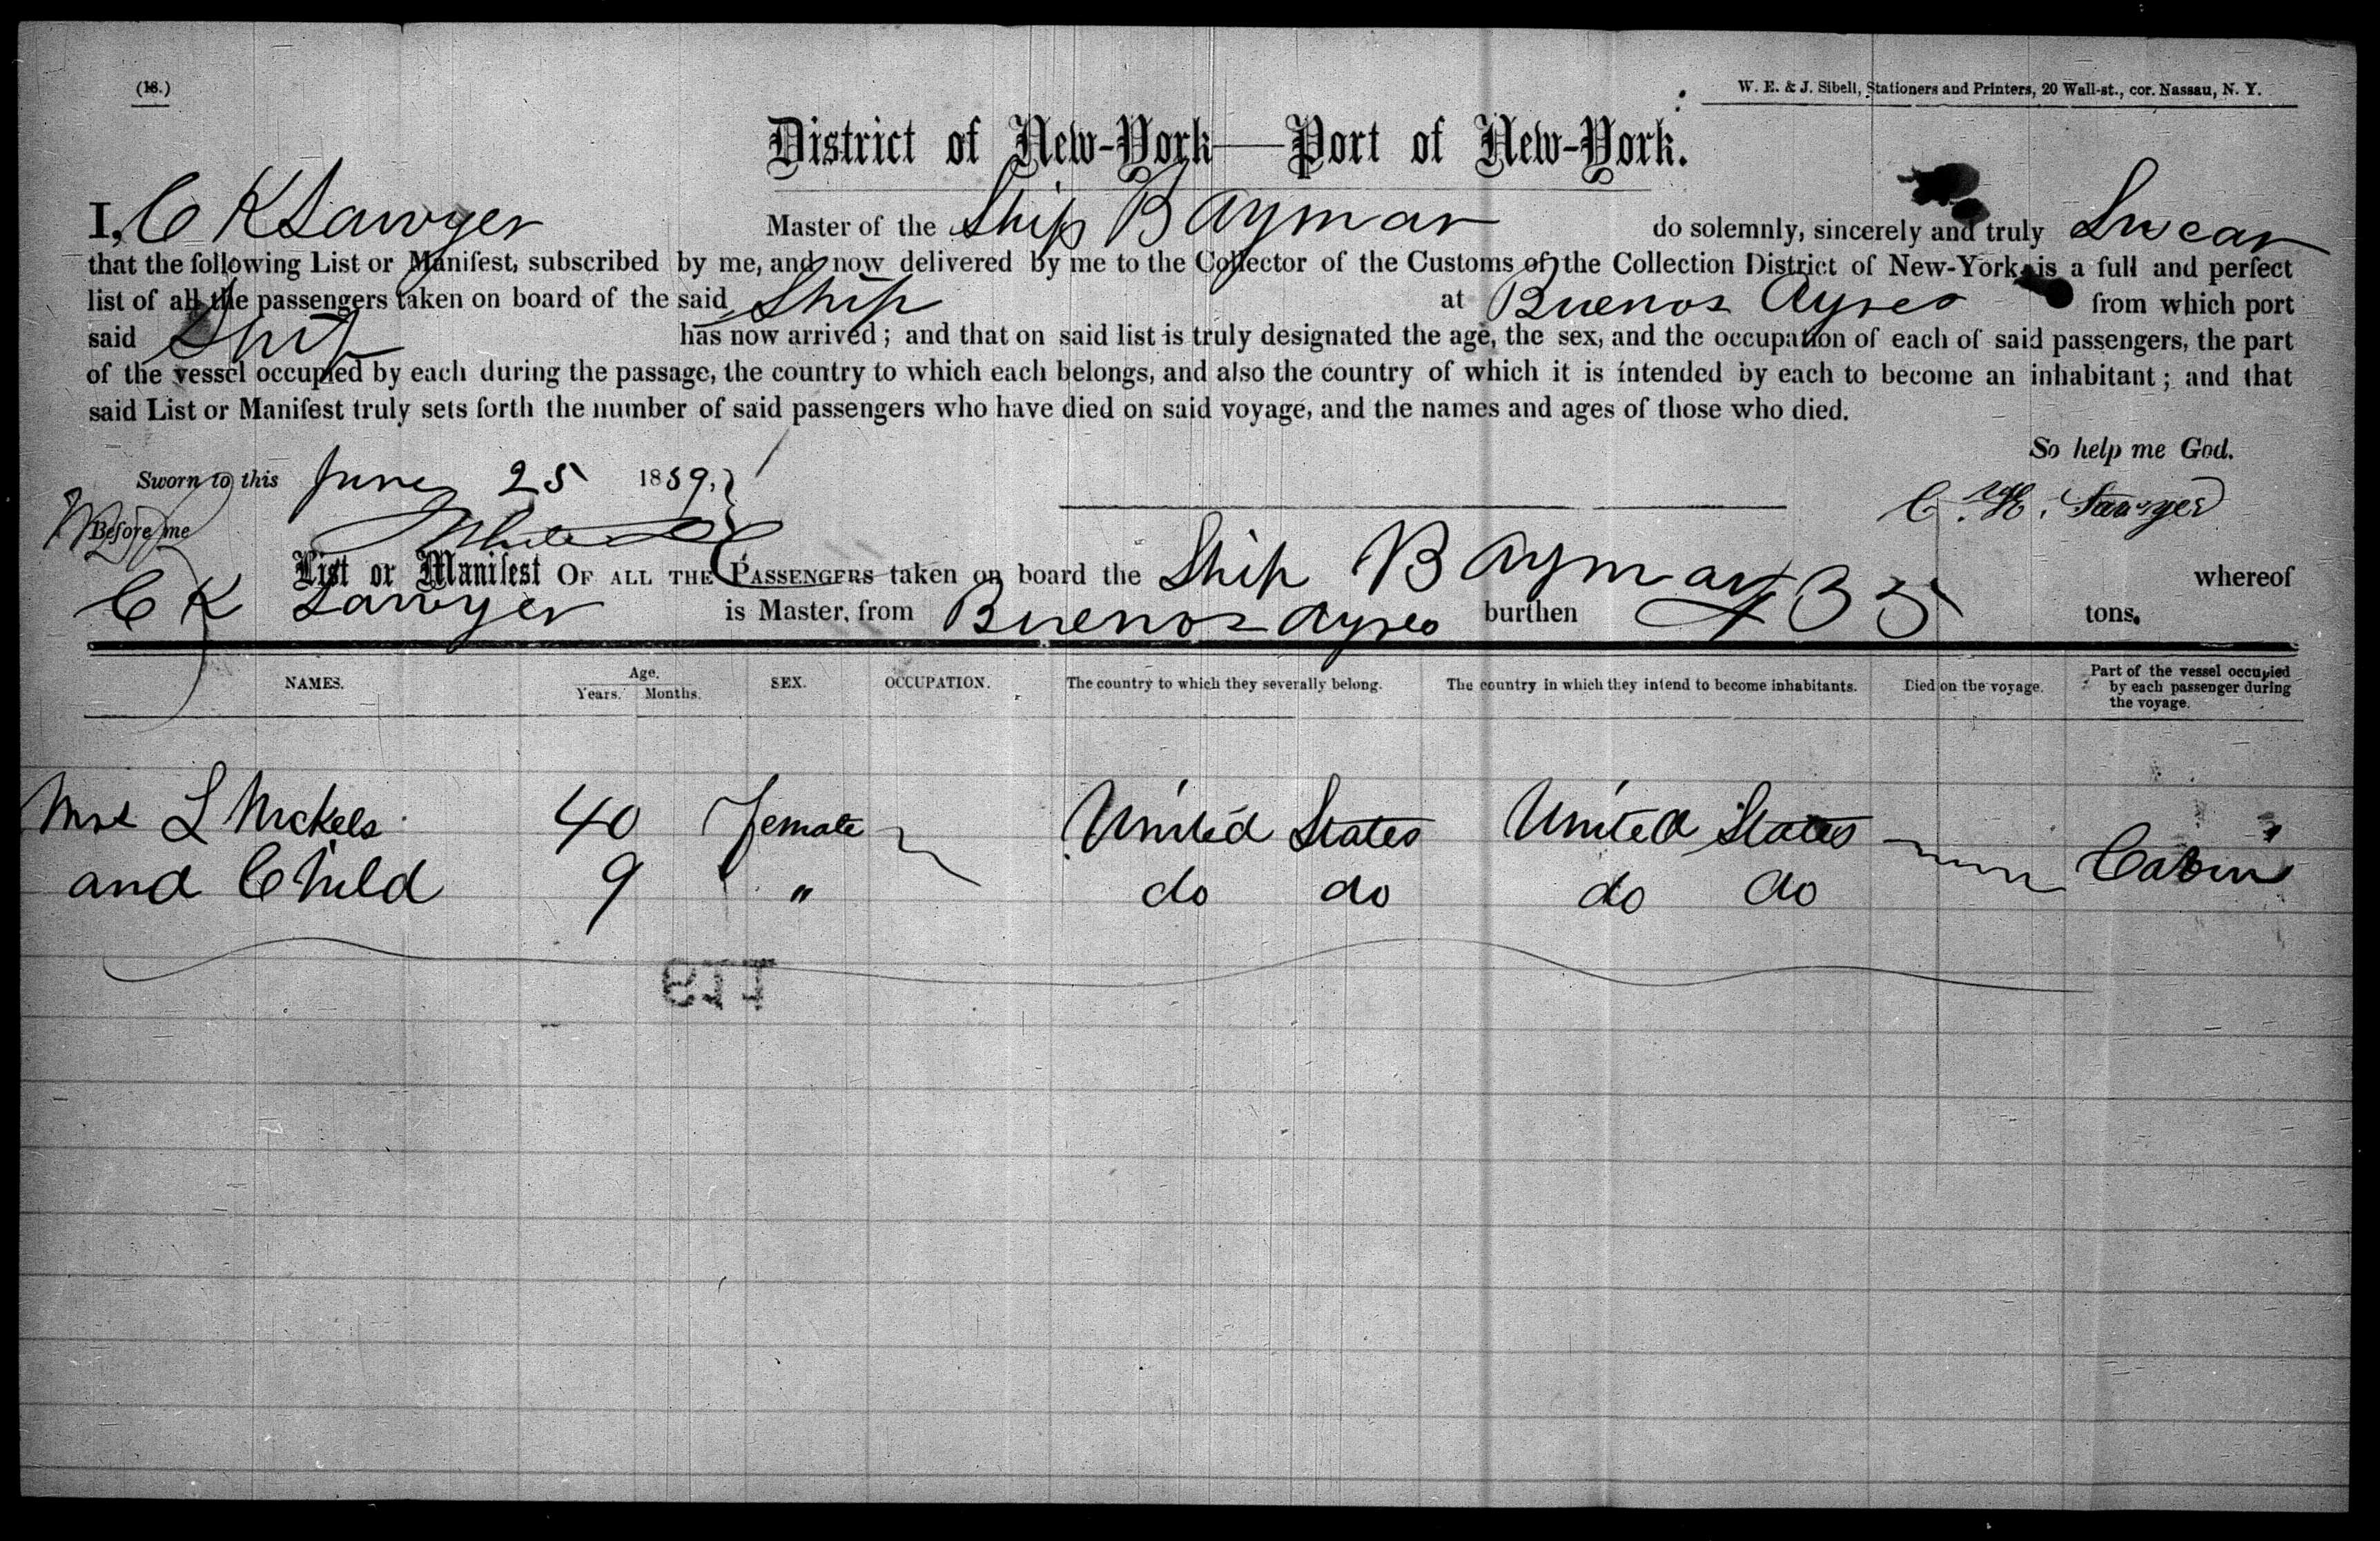 (18.)
W. E. & J. Sibell, Stationers and Printers, 20 Wall-st., cor. Nassau, N. Y.
District of New-York—Port of New-York.
I, C K Sawyer Master of the Ship Bayman do solemnly, sincerely and truly Swear
that the following List or Manifest, subscribed by me, and now delivered by me to the Collector of the Customs of the Collection District of New-York, is a full and perfect
list of all the passengers taken on board of the said Ship at Buenos Ayres from which port
said Ship has now arrived; and that on said list is truly designated the age, the sex, and the occupation of each of said passengers, the part
of the vessel occupied by each during the passage, the country to which each belongs, and also the country of which it is intended by each to become an inhabitant; and that
said List or Manifest truly sets forth the number of said passengers who have died on said voyage, and the names and ages of those who died.
So help me God.
Sworn to this June 25 1859,
Before me
C. K. Sawyer
List or Manifest OF ALL THE PASSENGERS taken on board the Ship Bayman whereof
C K Sawyer is Master, from Buenos Ayres burthen 435 tons.
NAMES. Age. Years. Months. SEX. OCCUPATION. The country to which they severally belong. The country in which they intend to become inhabitants. Died on the voyage. Part of the vessel occupied by each passenger during the voyage.
Mrs L Nickels 40 Female United States United States Cabin
and Child 9 " do do do do
611